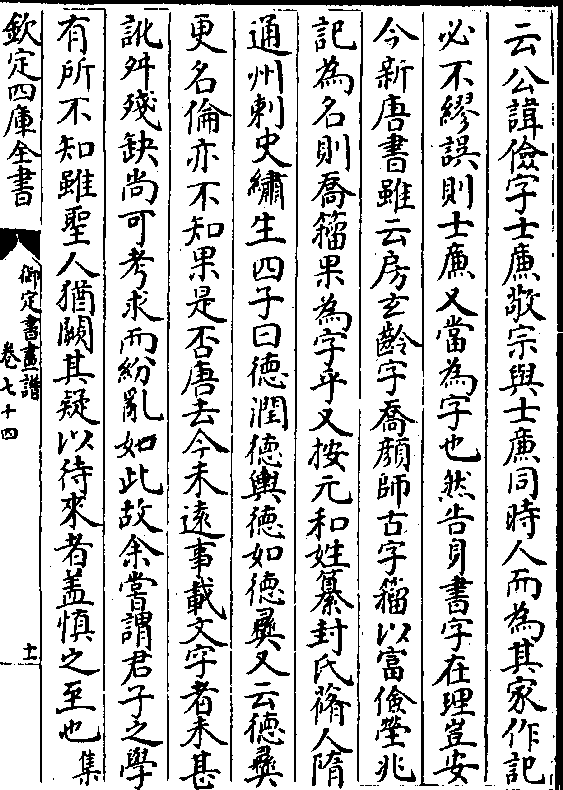 云公諱儉字士亷敬宗與士亷同時人而為其家作記
必不繆誤則士亷又當為字也然告身書字在理豈安
今新唐書雖云房玄齡字喬顔師古字籀以富儉塋兆
記為名則喬籀果為字乎又按元和姓纂封氏蓨人隋
通州刺史繡生四子曰徳潤徳輿徳如徳彛又云徳彛
更名倫亦不知果是否唐去今未逺事載文字者未甚
訛舛殘缺尚可考求而紛亂如此故余嘗謂君子之學
有所不知雖聖人猶闕其疑以待來者盖慎之至也集
欽定四庫全書
御定書畫譜
卷七十四
十一